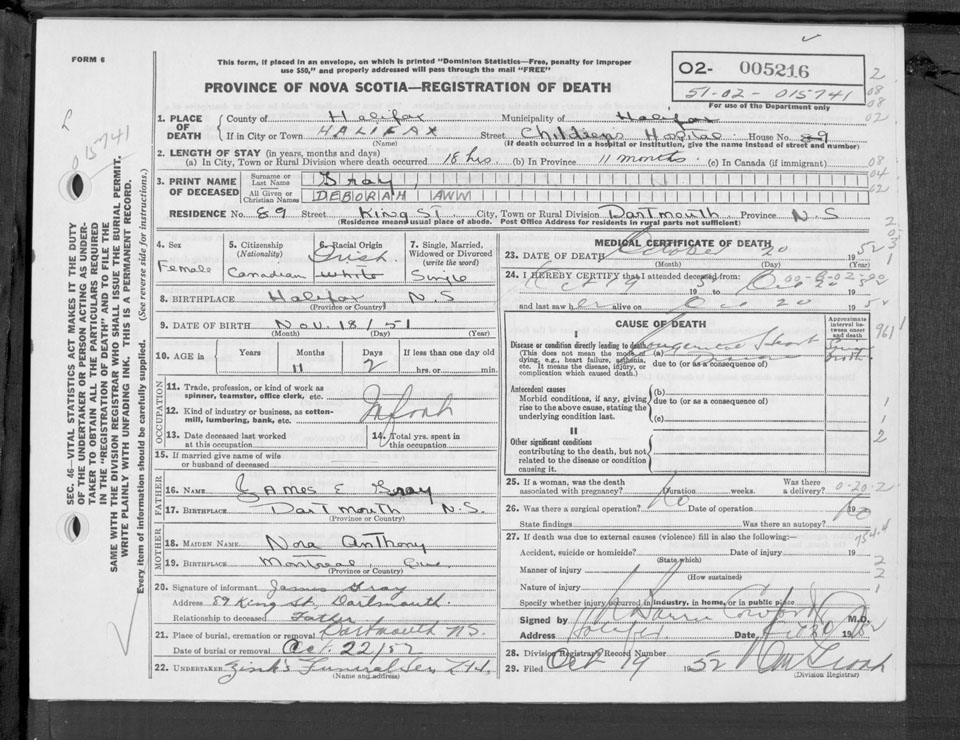 FORM 6
This form, if placed in an envelope, on which is printed "Dominion Statistics—Free, penalty for improper
use $50," and properly addressed will pass through the mail "FREE"
PROVINCE OF NOVA SCOTIA—REGISTRATION OF DEATH
O2- 005216
51-02-015741
For use of the Department only
2
08
08
02
015741
1. PLACE OF DEATH
County of Halifax Municipality of Halifax
If in City or Town HALIFAX Street Childrens Hospital House No.
(Name) (If death occurred in a hospital or institution, give the name instead of street and number)
2. LENGTH OF STAY (in years, months and days)
(a) In City, Town or Rural Division where death occurred 18 hrs. (b) In Province 11 months. (c) In Canada (if immigrant)
08
04
02
3. PRINT NAME OF DECEASED
Surname or Last Name Gray
All Given or Christian Names DEBORAH ANN
RESIDENCE No. 89 Street King ST City, Town or Rural Division Dartmouth Province N.S
(Residence means usual place of abode. Post Office Address for residents in rural parts not sufficient)
4. Sex
Female
5. Citizenship
(Nationality)
Canadian
6. Racial Origin
Irish
White
7. Single, Married, Widowed or Divorced
(write the word)
Single
8. BIRTHPLACE Halifax N.S
(Province or Country)
9. DATE OF BIRTH Nov. 18/51
(Month) (Day) (Year)
10. AGE in Years Months Days If less than one day
11 2 hrs. or min.
OCCUPATION
11. Trade, profession, or kind of work as
spinner, teamster, office clerk, etc.
12. Kind of industry or business, as cotton-
mill, lumbering, bank, etc.
Infant
13. Date deceased last worked
at this occupation
14. Total yrs. spent in
this occupation
15. If married give name of wife
or husband of deceased
FATHER
16. NAME James E Gray
17. BIRTHPLACE Dartmouth N.S.
(Province or Country)
MOTHER
18. MAIDEN NAME Nora Anthony
19. BIRTHPLACE Montreal, Que
(Province or Country)
20. Signature of informant James Gray
Address 89 King St, Dartmouth.
Relationship to deceased Father
21. Place of burial, cremation or removal Dartmouth N.S.
Date of burial or removal Oct. 22/52
22. UNDERTAKER Zink's Funeral Ser. Ltd.
(Name and address)
MEDICAL CERTIFICATE OF DEATH
23. DATE OF DEATH October 20 1952
(Month) (Day) (Year)
24. I HEREBY CERTIFY that I attended deceased from:
Oct 19 1952 to Oct 20 1952
and last saw her alive on Oct 20 1952
CAUSE OF DEATH
Approximate interval between onset and death
I
Disease or condition directly leading to death
(This does not mean the mode of dying, e.g., heart failure, asthenia, etc. It means the disease, injury, or complication which caused death.)
(a) Congenital Heart Disease
due to (or as a consequence of)
Since Birth
961
Antecedent causes
Morbid conditions, if any, giving rise to the above cause, stating the underlying condition last.
(b)
due to (or as a consequence of)
(c)
II
Other significant conditions
contributing to the death, but not related to the disease or condition causing it.
1
2
25. If a woman, was the death associated with pregnancy? Duration weeks. Was there a delivery?
0-20-2
26. Was there a surgical operation? No Date of operation 19
State findings Was there an autopsy? No
27. If death was due to external causes (violence) fill in also the following:—
Accident, suicide or homicide? Date of injury 19
(State which)
Manner of injury
(How sustained)
Nature of injury
Specify whether injury occurred in industry, in home, or in public place
754.4
2
2
1
Signed by M.D.
Address Halifax Date 1952
28. Division Registrar's Record Number
29. Filed Oct 19 1952
(Division Registrar)
SEC. 46—VITAL STATISTICS ACT MAKES IT THE DUTY
OF THE UNDERTAKER OR PERSON ACTING AS UNDER-
TAKER TO OBTAIN ALL THE PARTICULARS REQUIRED
IN THE "REGISTRATION OF DEATH" AND TO FILE THE
SAME WITH THE DIVISION REGISTRAR WHO SHALL ISSUE THE BURIAL PERMIT.
WRITE PLAINLY WITH UNFADING INK. THIS IS A PERMANENT RECORD.
Every item of information should be carefully supplied. (See reverse side for instructions.)